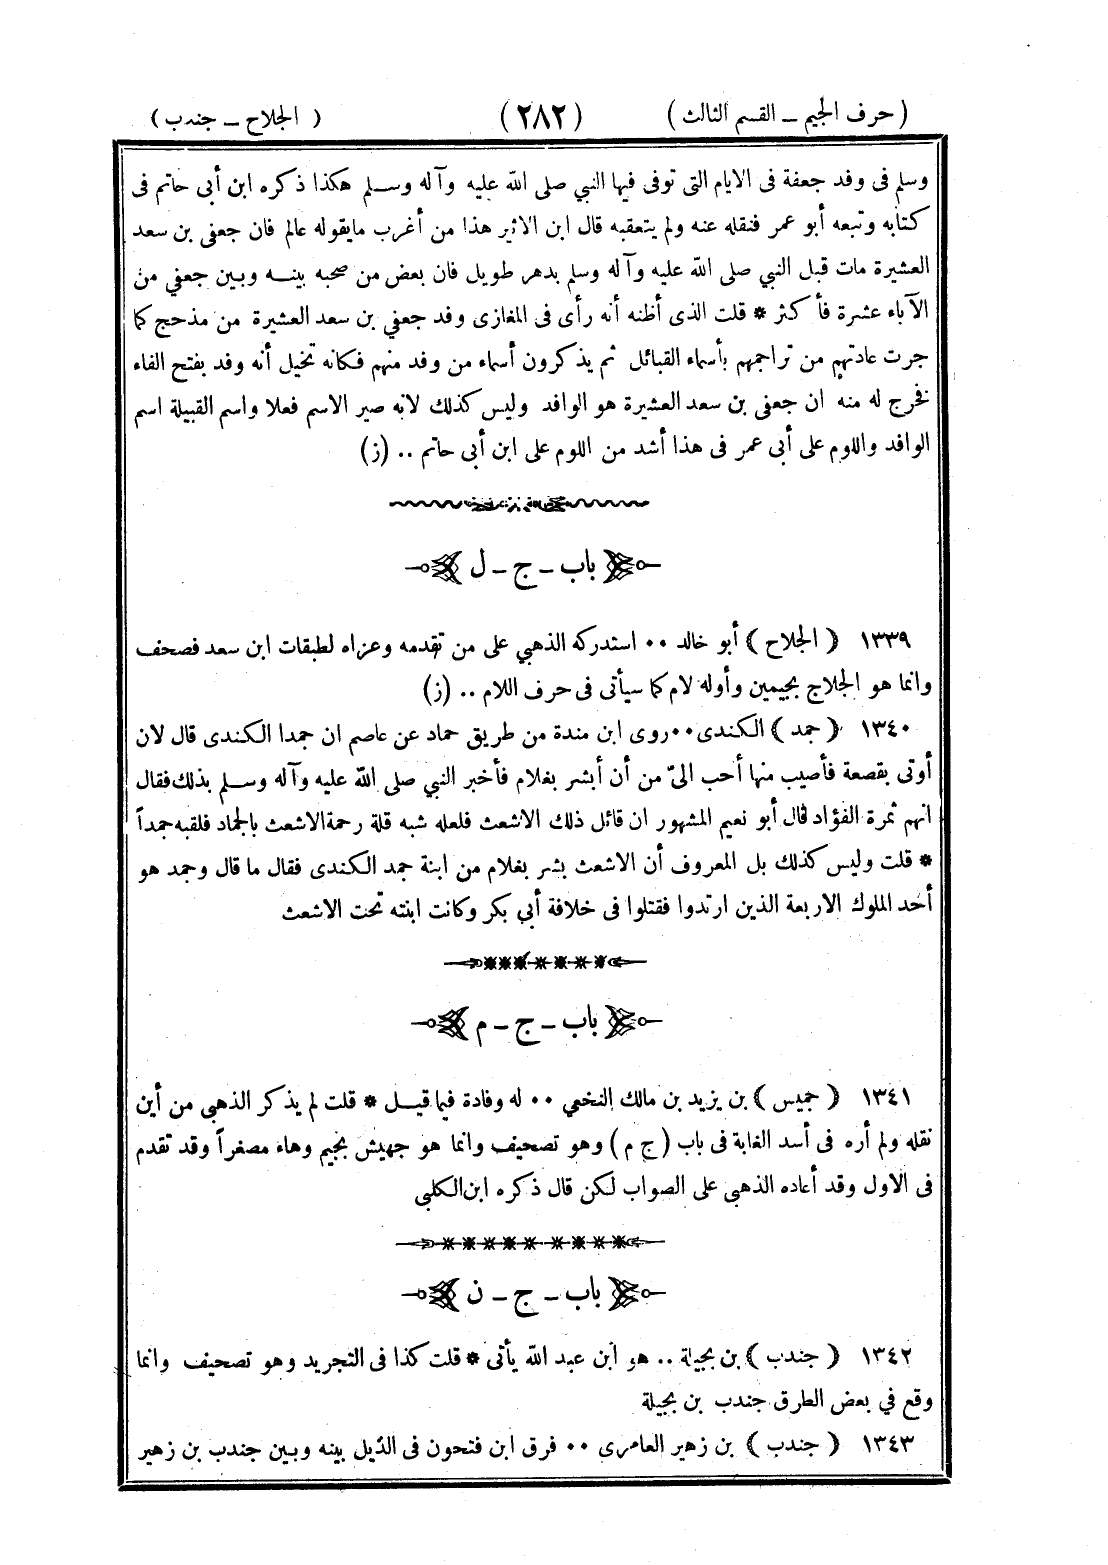 ( حرف الجيم ــ القسم الثالث ) (٢٨٢) ( الجلاح ــ جندب )
وسلم فى وفد جعفة فى الايام التى توفى فيها النبي صلى الله عليه وآله وسلم هكذا ذكره ابن أبى حاتم فى
كتابه وتبعه أبو عمر فنقله عنه ولم يتعقبه قال ابن الاثير هذا من أغرب مايقوله عالم فان جعفى بن سعد
العشيرة مات قبل النبي صلى الله عليه وآله وسلم بدهر طويل فان بعض من صحبه بينه وبين جعفي من
الآباء عشرة فأ كثر * قلت الذى أظنه أنه رأى فى المغازى وفد جعفي بن سعد العشيرة من مذحج كما
جرت عادتهم من تراجمهم بأسماء القبائل ثم يذكرون أسماء من وفد منهم فكانه تخيل أنه وفد بفتح الفاء
فخرج له منه ان جعفى بن سعد العشيرة هو الوافد وليس كذلك لانه صير الاسم فعلا واسم القبيلة اسم
الوافد واللوم على أبى عمر فى هذا أشد من اللوم على ابن أبى حاتم .. (ز)
باب ــ ج ــ ل
١٣٣٩ ( الجلاح ) أبو خالد .. استدركه الذهبي على من تقدمه وعزاه لطبقات ابن سعد فصحف
وانما هو الجلاج بجيمين وأوله لام كما سيأتى فى حرف اللام .. (ز)
١٣٤٠ ( جمد ) الكندى .. روى ابن مندة من طريق حماد عن عاصم ان جمدا الكندى قال لان
أوتى بقصعة فأصيب منها أحب الىّ من أن أبشر بغلام فأخبر النبي صلى الله عليه وآله وسلم بذلك فقال
انهم ثمرة الفؤاد قال أبو نعيم المشهور ان قائل ذلك الاشعث فلعله شبه قلة رحمة الاشعث بالجماد فلقبه جمداً
* قلت وليس كذلك بل المعروف أن الاشعث بشر بغلام من ابنة جمد الكندى فقال ما قال وجمد هو
أحد الملوك الاربعة الذين ارتدوا فقتلوا فى خلافة أبي بكر وكانت ابنته تحت الاشعث
باب ــ ج ــ م
١٣٤١ ( جميس ) بن يزيد بن مالك النخعي .. له وفادة فيما قيل * قلت لم يذكر الذهبي من أين
نقله ولم أره فى أسد الغابة فى باب ( ج م ) وهو تصحيف وانما هو جهيش بجيم وهاء مصغراً وقد تقدم
فى الاول وقد أعاده الذهبي على الصواب لكن قال ذكره ابن الكلبى
باب ــ ج ــ ن
١٣٤٢ ( جندب ) بن بجيلة .. هو ابن عبد الله يأتى * قلت كذا فى التجريد وهو تصحيف وانما
وقع في بعض الطرق جندب بن بجيلة
١٣٤٣ ( جندب ) بن زهير العامرى .. فرق ابن فتحون فى الذيل بينه وبين جندب بن زهير